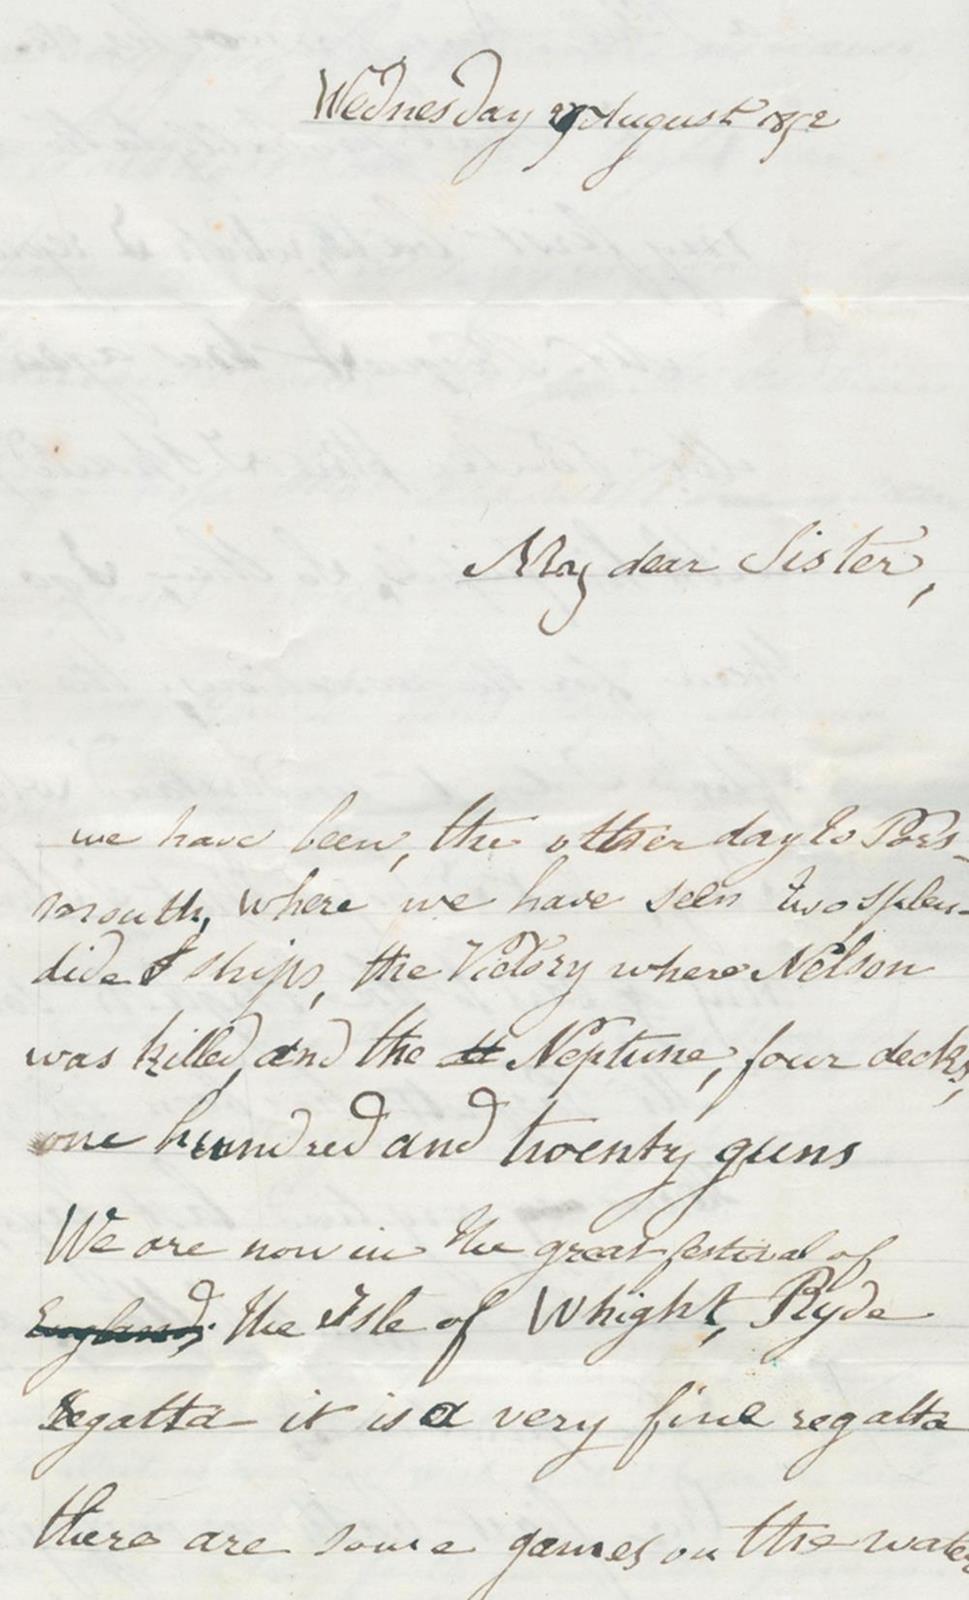 Wednesday August 1852
My dear Sister,
we have been, the other day to Pors-
mouth, where we have seen two splen-
dide ships, the Victory where Nelson
was killed, and the Neptune, four decks,
one hundred and twenty guns
We are now in the great festival of
England; the Isle of Whight, Ryde
Regatta it is a very fine regatta
there are some games on the water